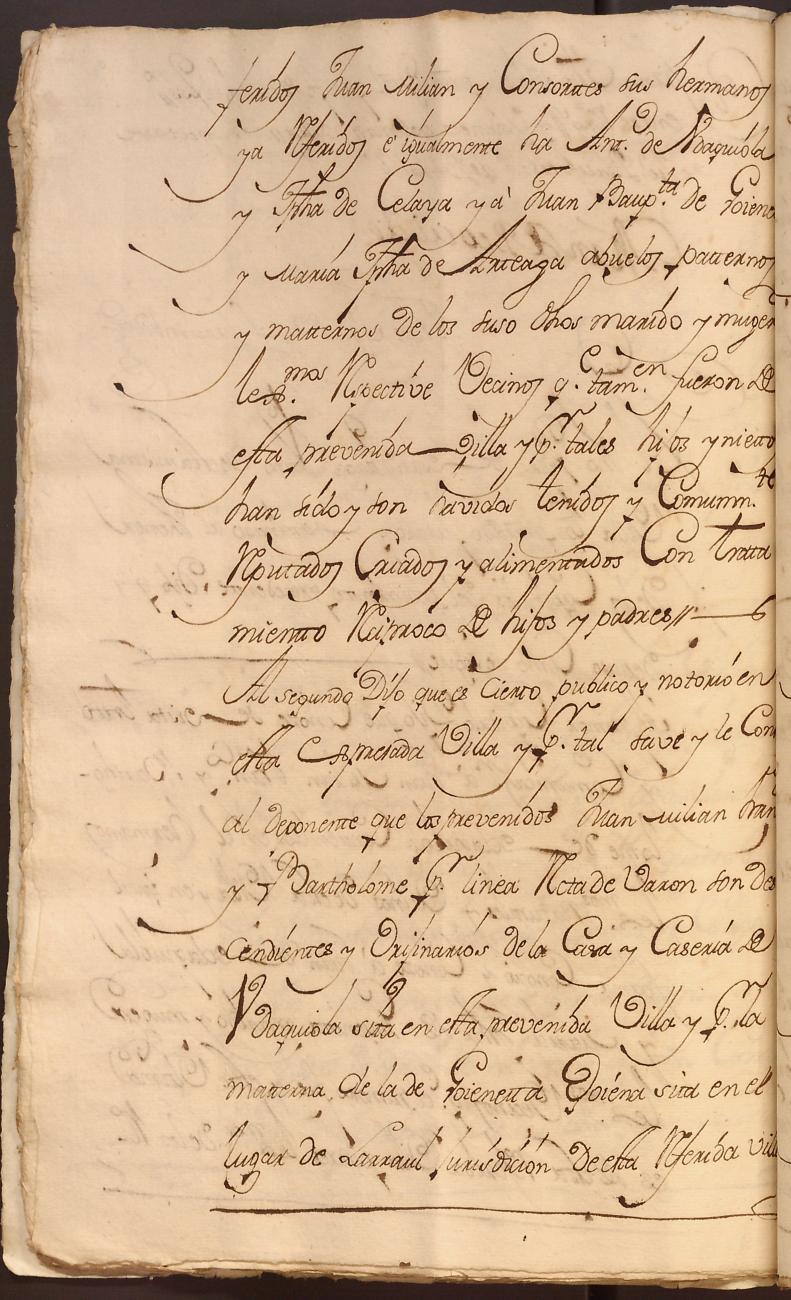 feridos Juan Milian y Consortes sus hermanos
ya Rferidos e igualmente ha Ant.º de Vdaquiola
y Jpha de Celaya y à Juan Baup.ta de Goiene
y María Jpha de Arteaga abuelos patternos
y matternos de los suso dhos marido y muger
lex.mos Rspective Vecinos q.e tam.en fueron de
esta prevenida Villa y p.r tales hijos y nietos
han sido y son havidos tenidos y Comunm.te
Rputados Criados y alimentados Con trata
miento Reciproco de hijos y padres //
Al segundo Dijo que es Cierto publico y notorio en
esta expresada Villa y p.r tal save y le Cons
al deponente que los prevenidos Juan Milian fran
y Bartholome p.r linea Rcta de Varon son des
cendientes y Orijinarios de la Casa y Caseria de
Vdaquiola sita en esta prevenida Villa y p.r la
matterna de la de Goienetta Goiena sita en el
lugar de Larraul Jurisdición de esta Rferida Villa